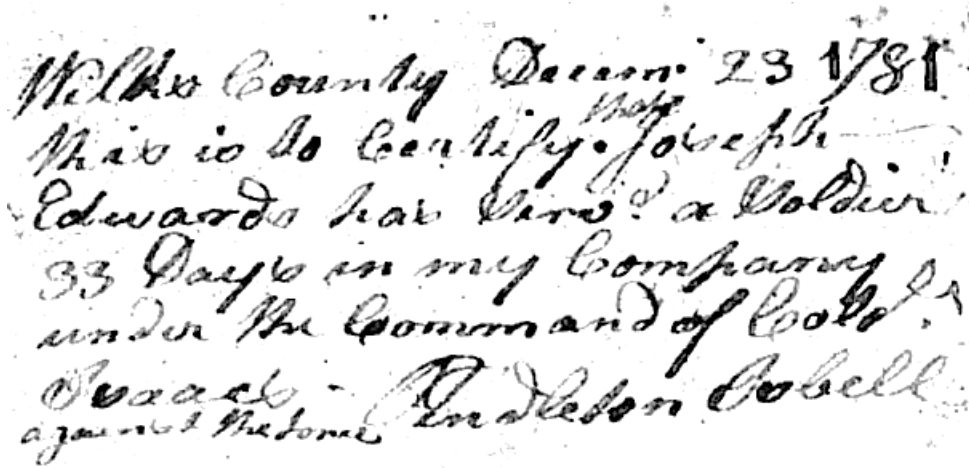 Wilks County Decem: 23 1781
this is to Certify. that Joseph
Edwards has Serv.d a Soldier
33 Days in my Company
under the Command of Colo.
Isaacs - Pendleton Isbell
against the tories